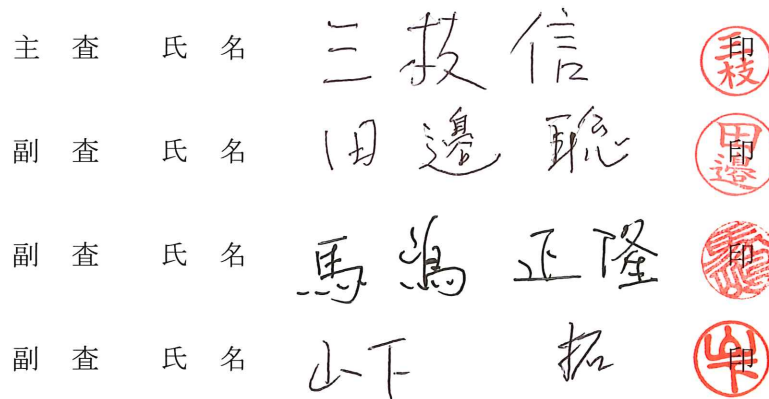 主査 氏名 三枝信 印
副査 氏名 田邊聡 印
副査 氏名 馬嶋正隆 印
副査 氏名 山下拓 印